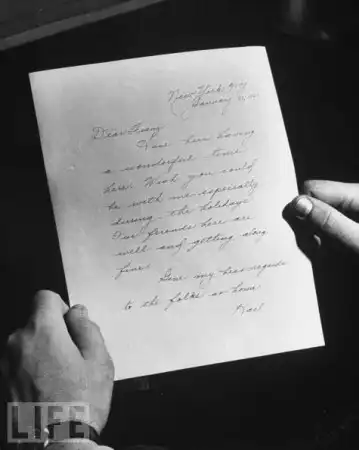 New York, N.Y.
January
Dear
Have been having
a wonderful time
here. Wish you could
be with me especially
during the holidays.
friends here are
well and getting along
fine.
Give my best regards
to the folks at home.
LIFE